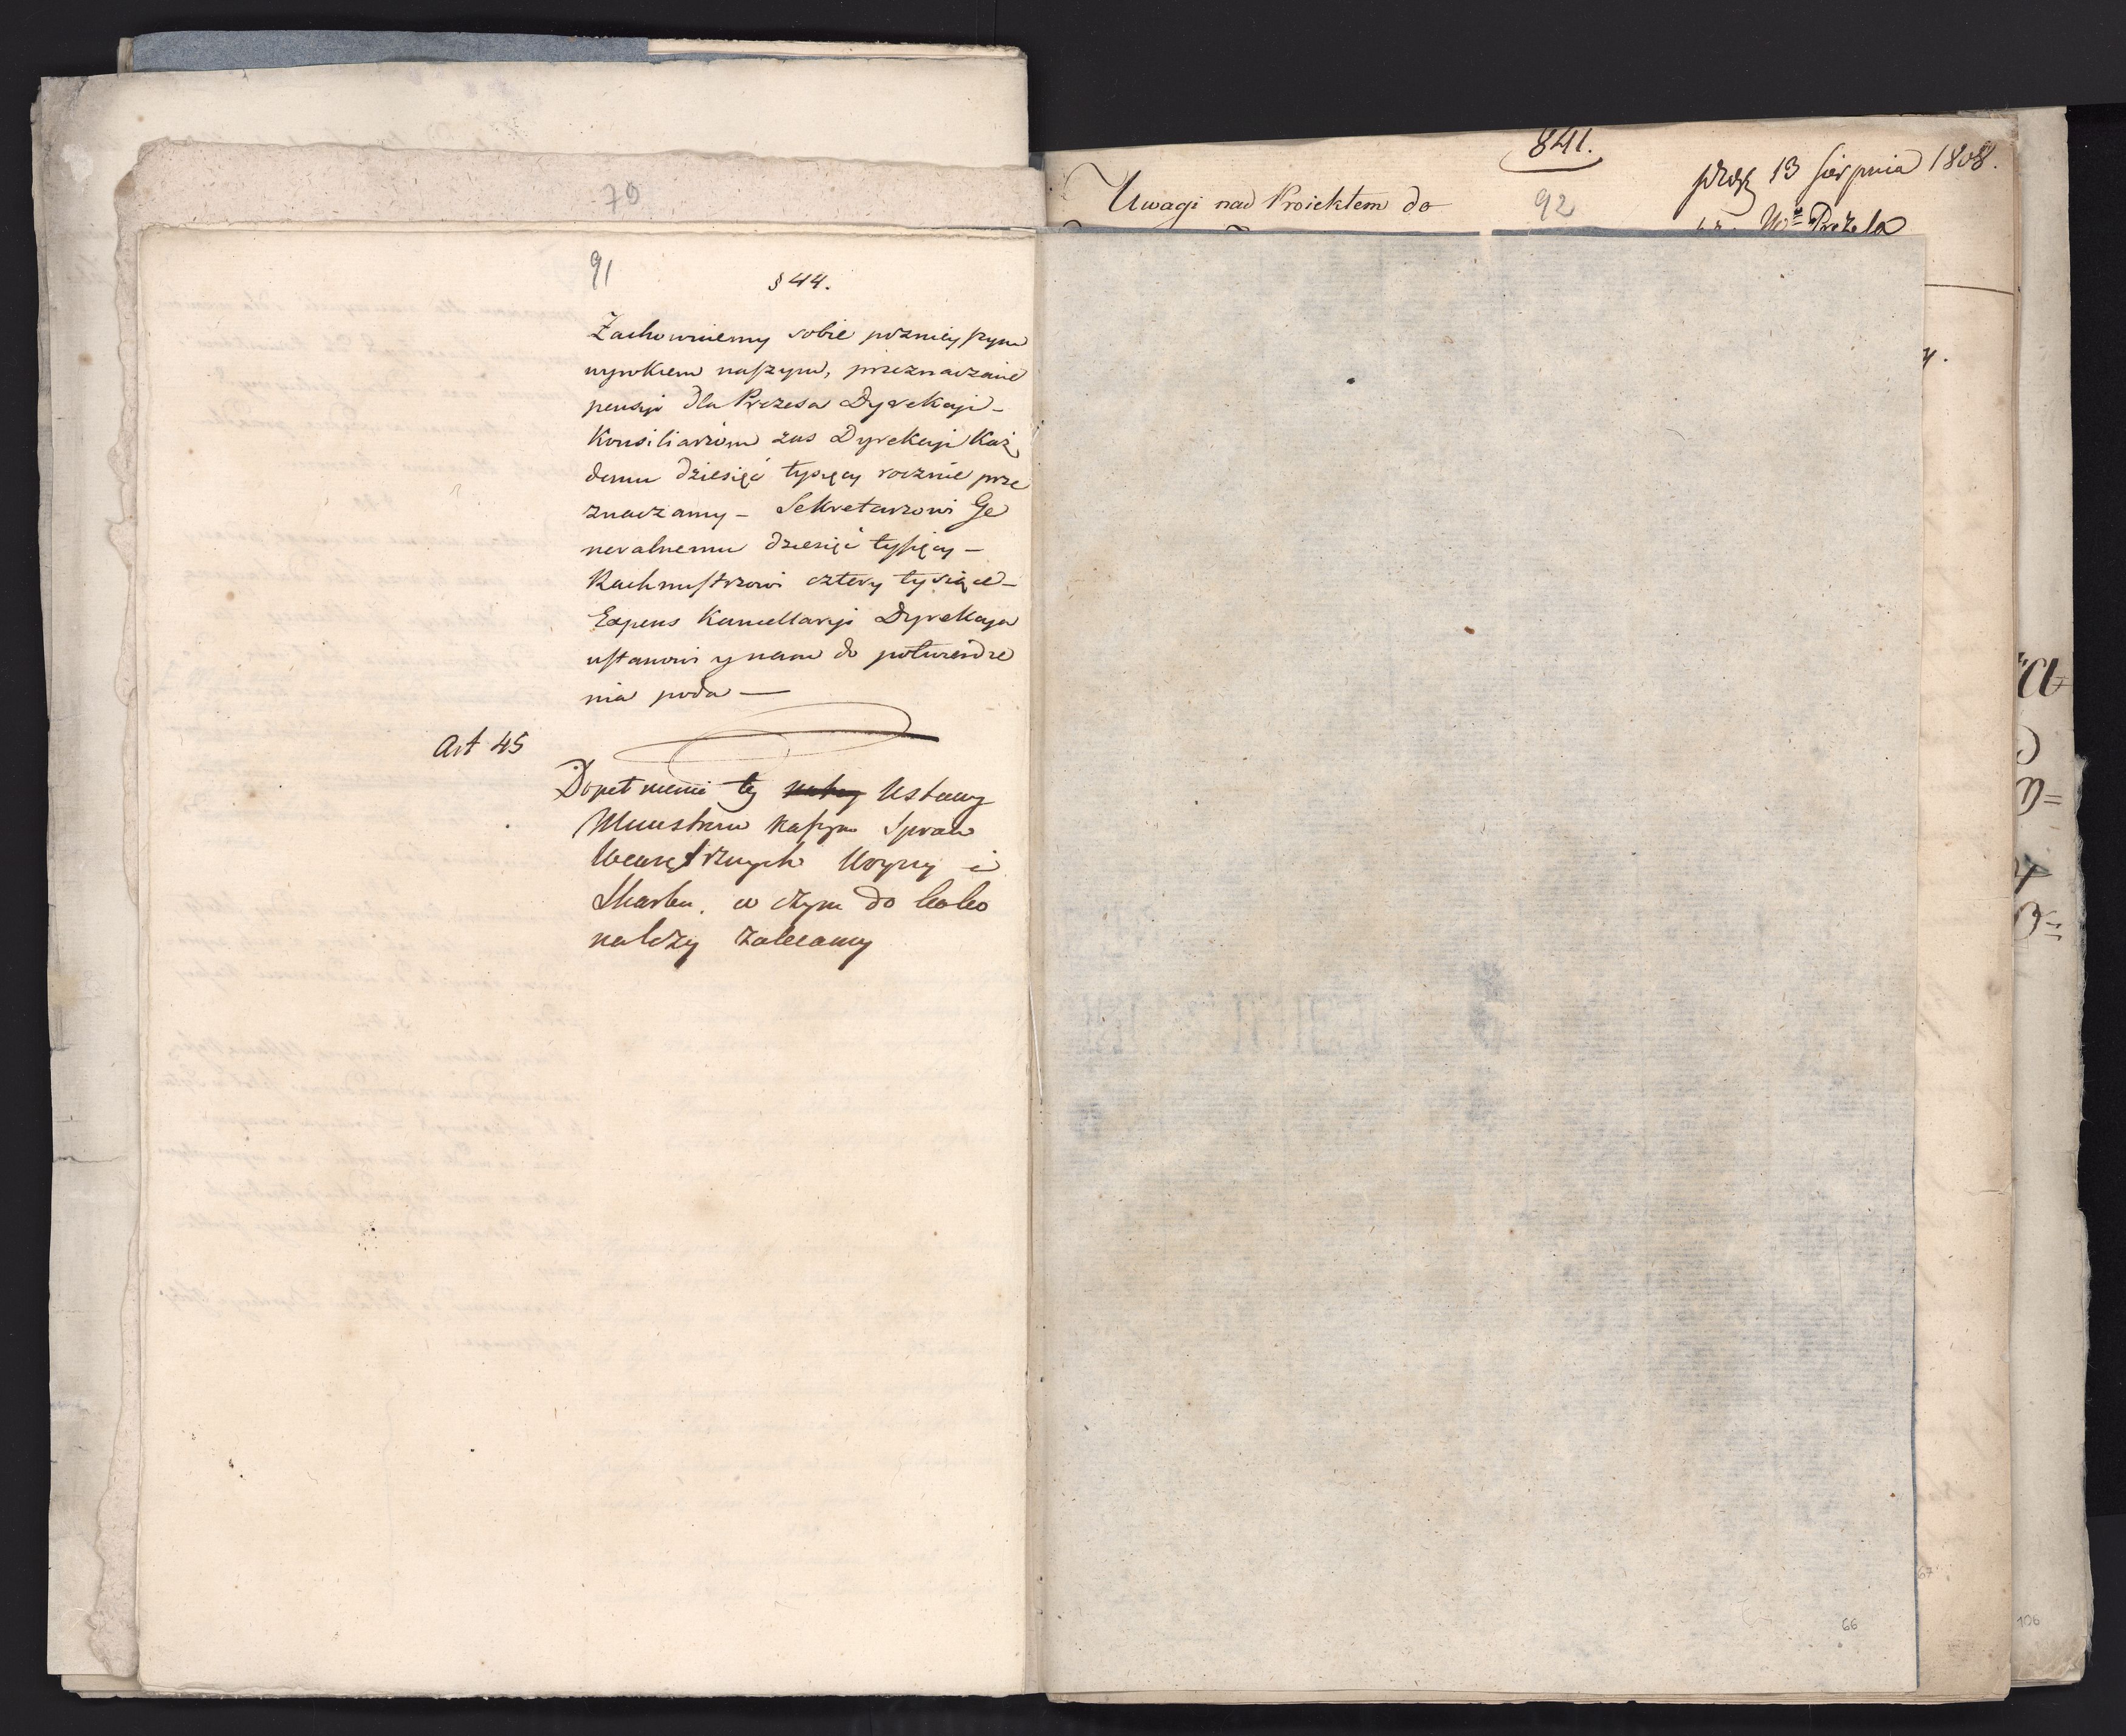 70
91
§ 44.
Zachowuiemy sobie pozniey szym
wyrokiem naszym, przeznaczenie
pensyi dla Prezesa Dyrekcyi –
Konsiliarzom zas Dyrekcyi Każ
demu dziesięć tysięcy rocznie prze
znaczamy – Sekretarzowi Ge
neralnemu dziesięć tysięcy –
Rachmistrzowi cztery tysiące –
Expens Kancellaryi Dyrekcya
ustanowi y nam do potwierdze
nia poda —
Art 45
Dopełnienie tey Ustawy
Ministrom naszym Spraw
Wewnętrznych Woyny i
Skarbu. w czym do kogo
należy zalecamy
841.
13 Sierpnia 1808.
Uwagi nad Proiektem do
92
66
67
106